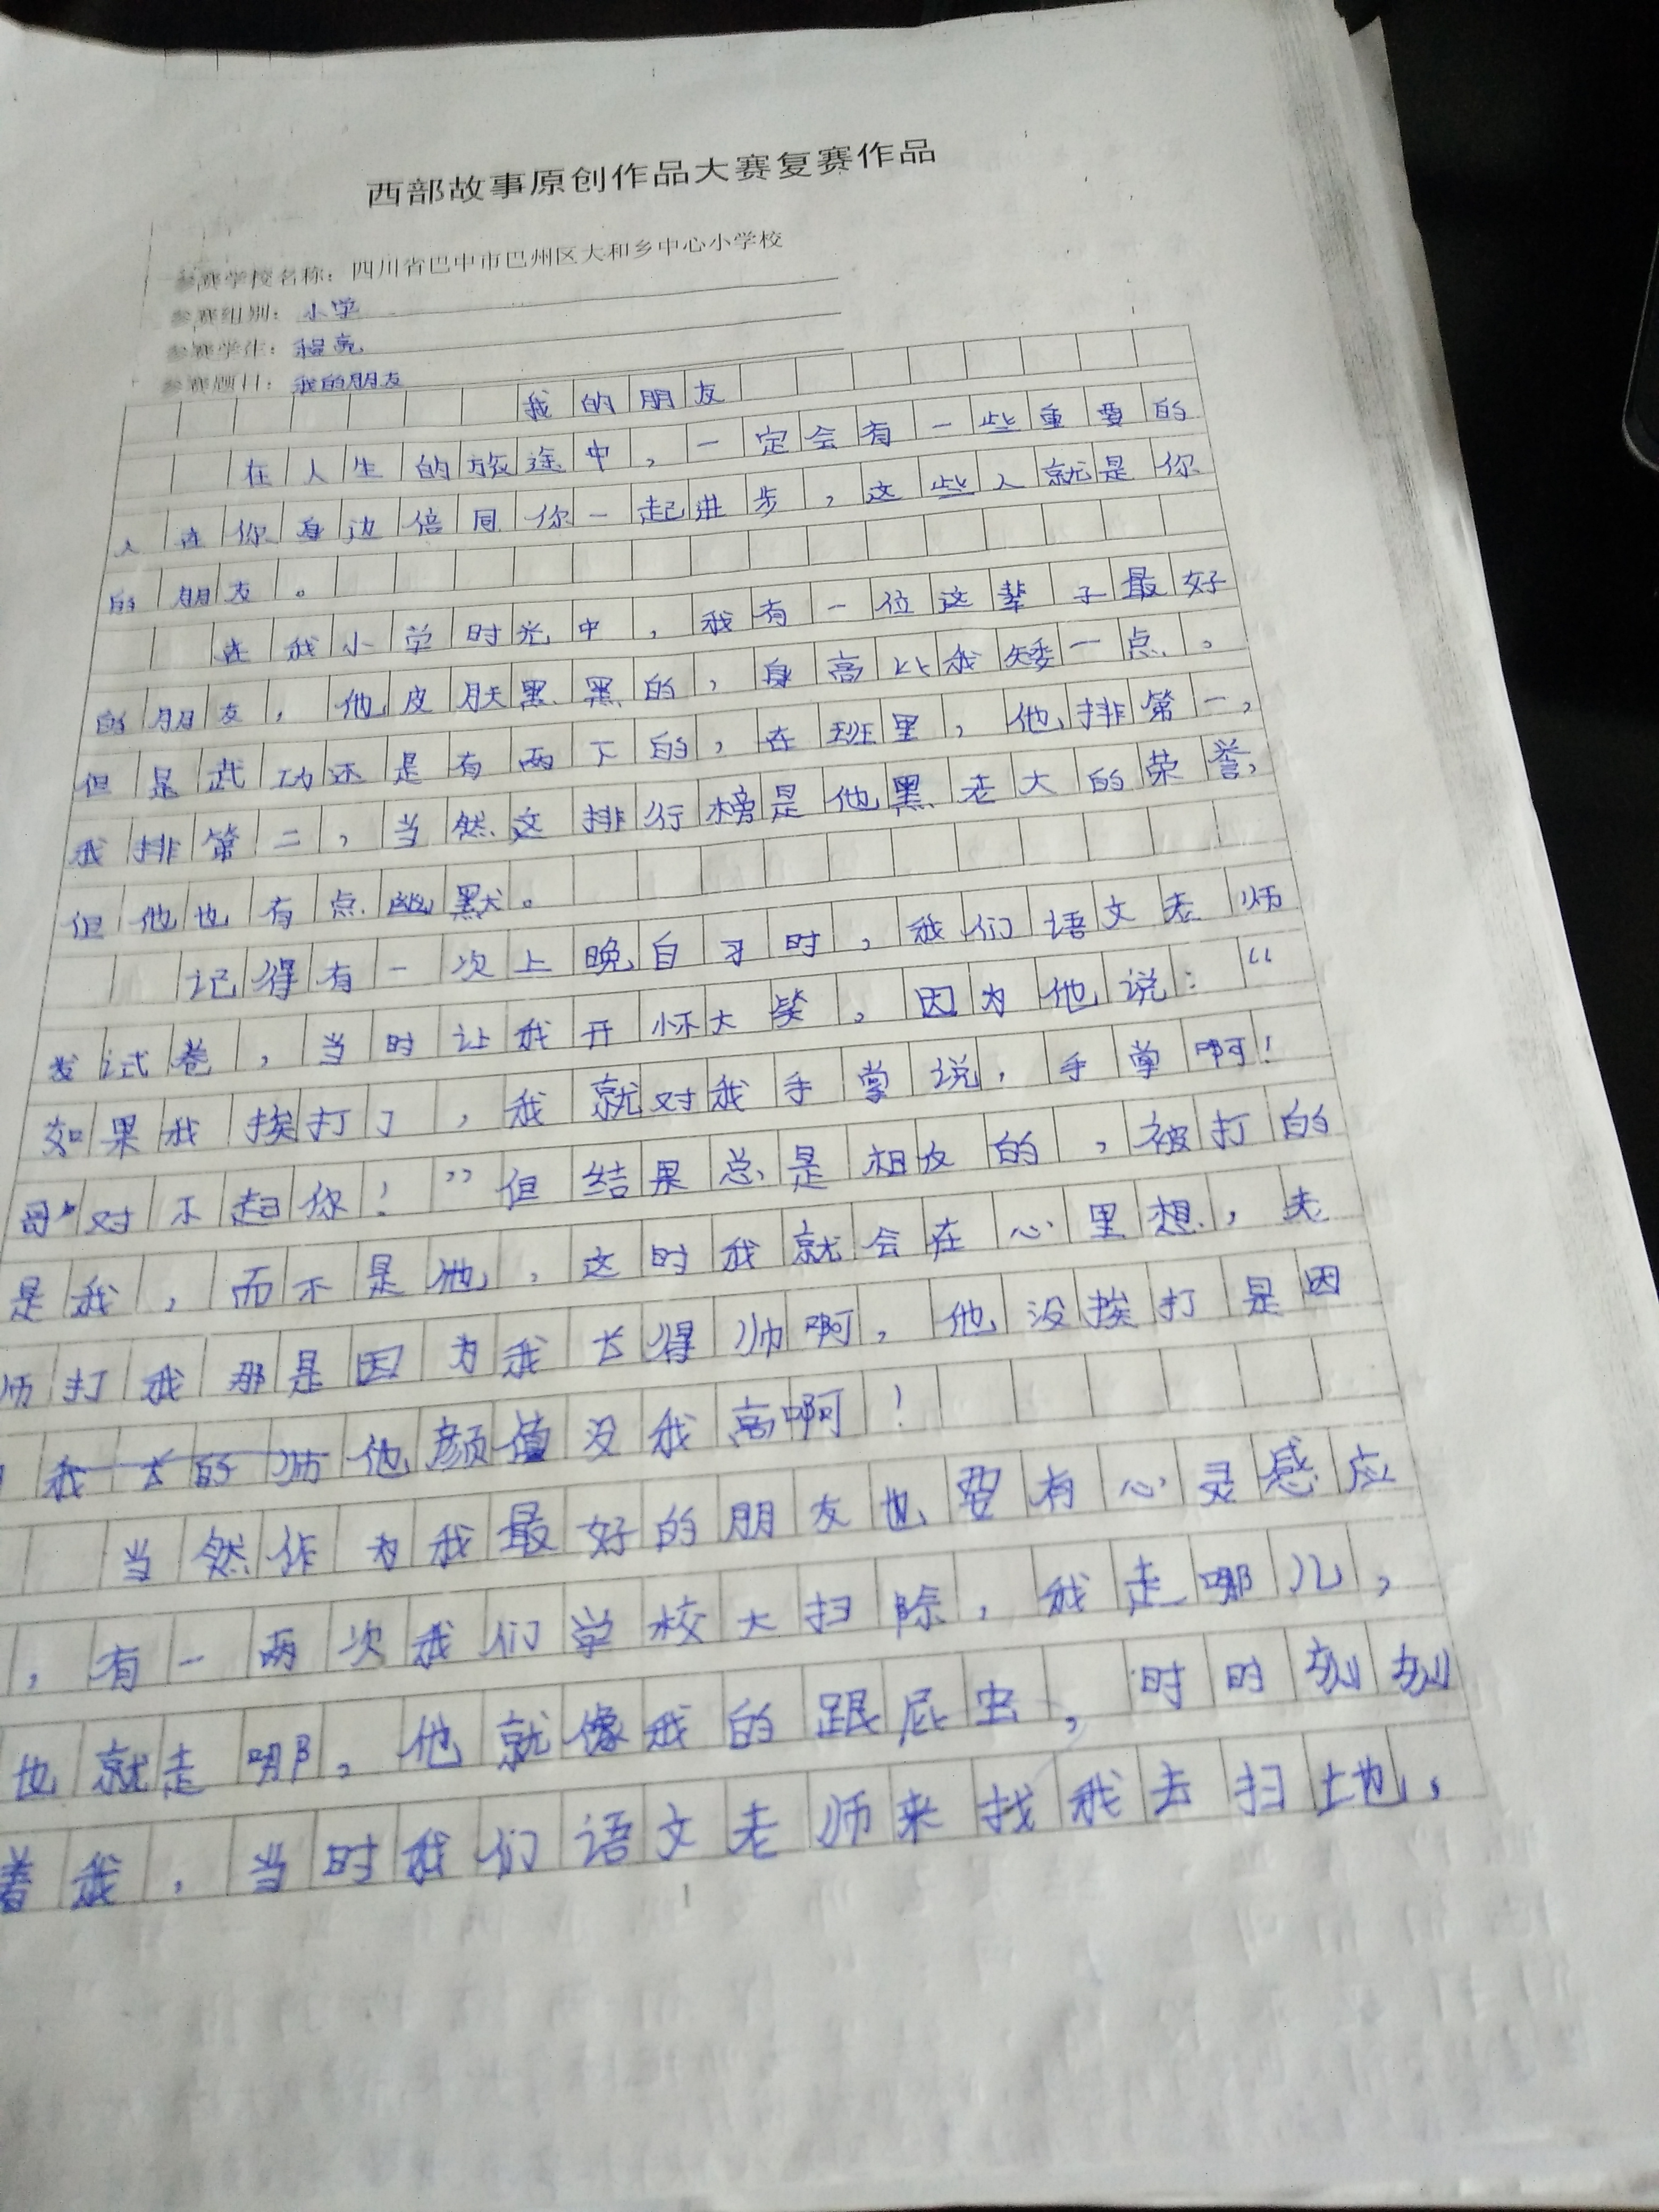 西部故事原创作品大赛复赛作品
参赛学校名称：四川省巴中市巴州区大和乡中心小学校
参赛组别：小学
参赛学生：程亮
参赛题目：我的朋友
我的朋友
在人生的旅途中，一定会有一些重要的
人在你身边倍同你一起进步，这些人就是你
的朋友。
在我小学时光中，我有一位这辈子最好
的朋友，他皮肤黑黑的，身高比我矮一点。
但是武功还是有两下的，在班里，他排第一，
我排第二，当然这排行榜是他黑老大的荣誉，
但他也有点幽默。
记得有一次上晚自习时，我们语文老师
发试卷，当时让我开怀大笑，因为他说：“
如果我挨打了，我就对我手掌说，手掌啊！
哥对不起你！”但结果总是相反的，被打的
是我，而不是他，这时我就会在心里想，老
师打我那是因为我长得帅啊，他没挨打是因
我长的师他颜值没我高啊！
当然作为我最好的朋友也要有心灵感应
，有一两次我们学校大扫除，我走哪儿，
也就走哪，他就像我的跟屁虫，时时刻刻
着我，当时我们语文老师来找我去扫地，
1